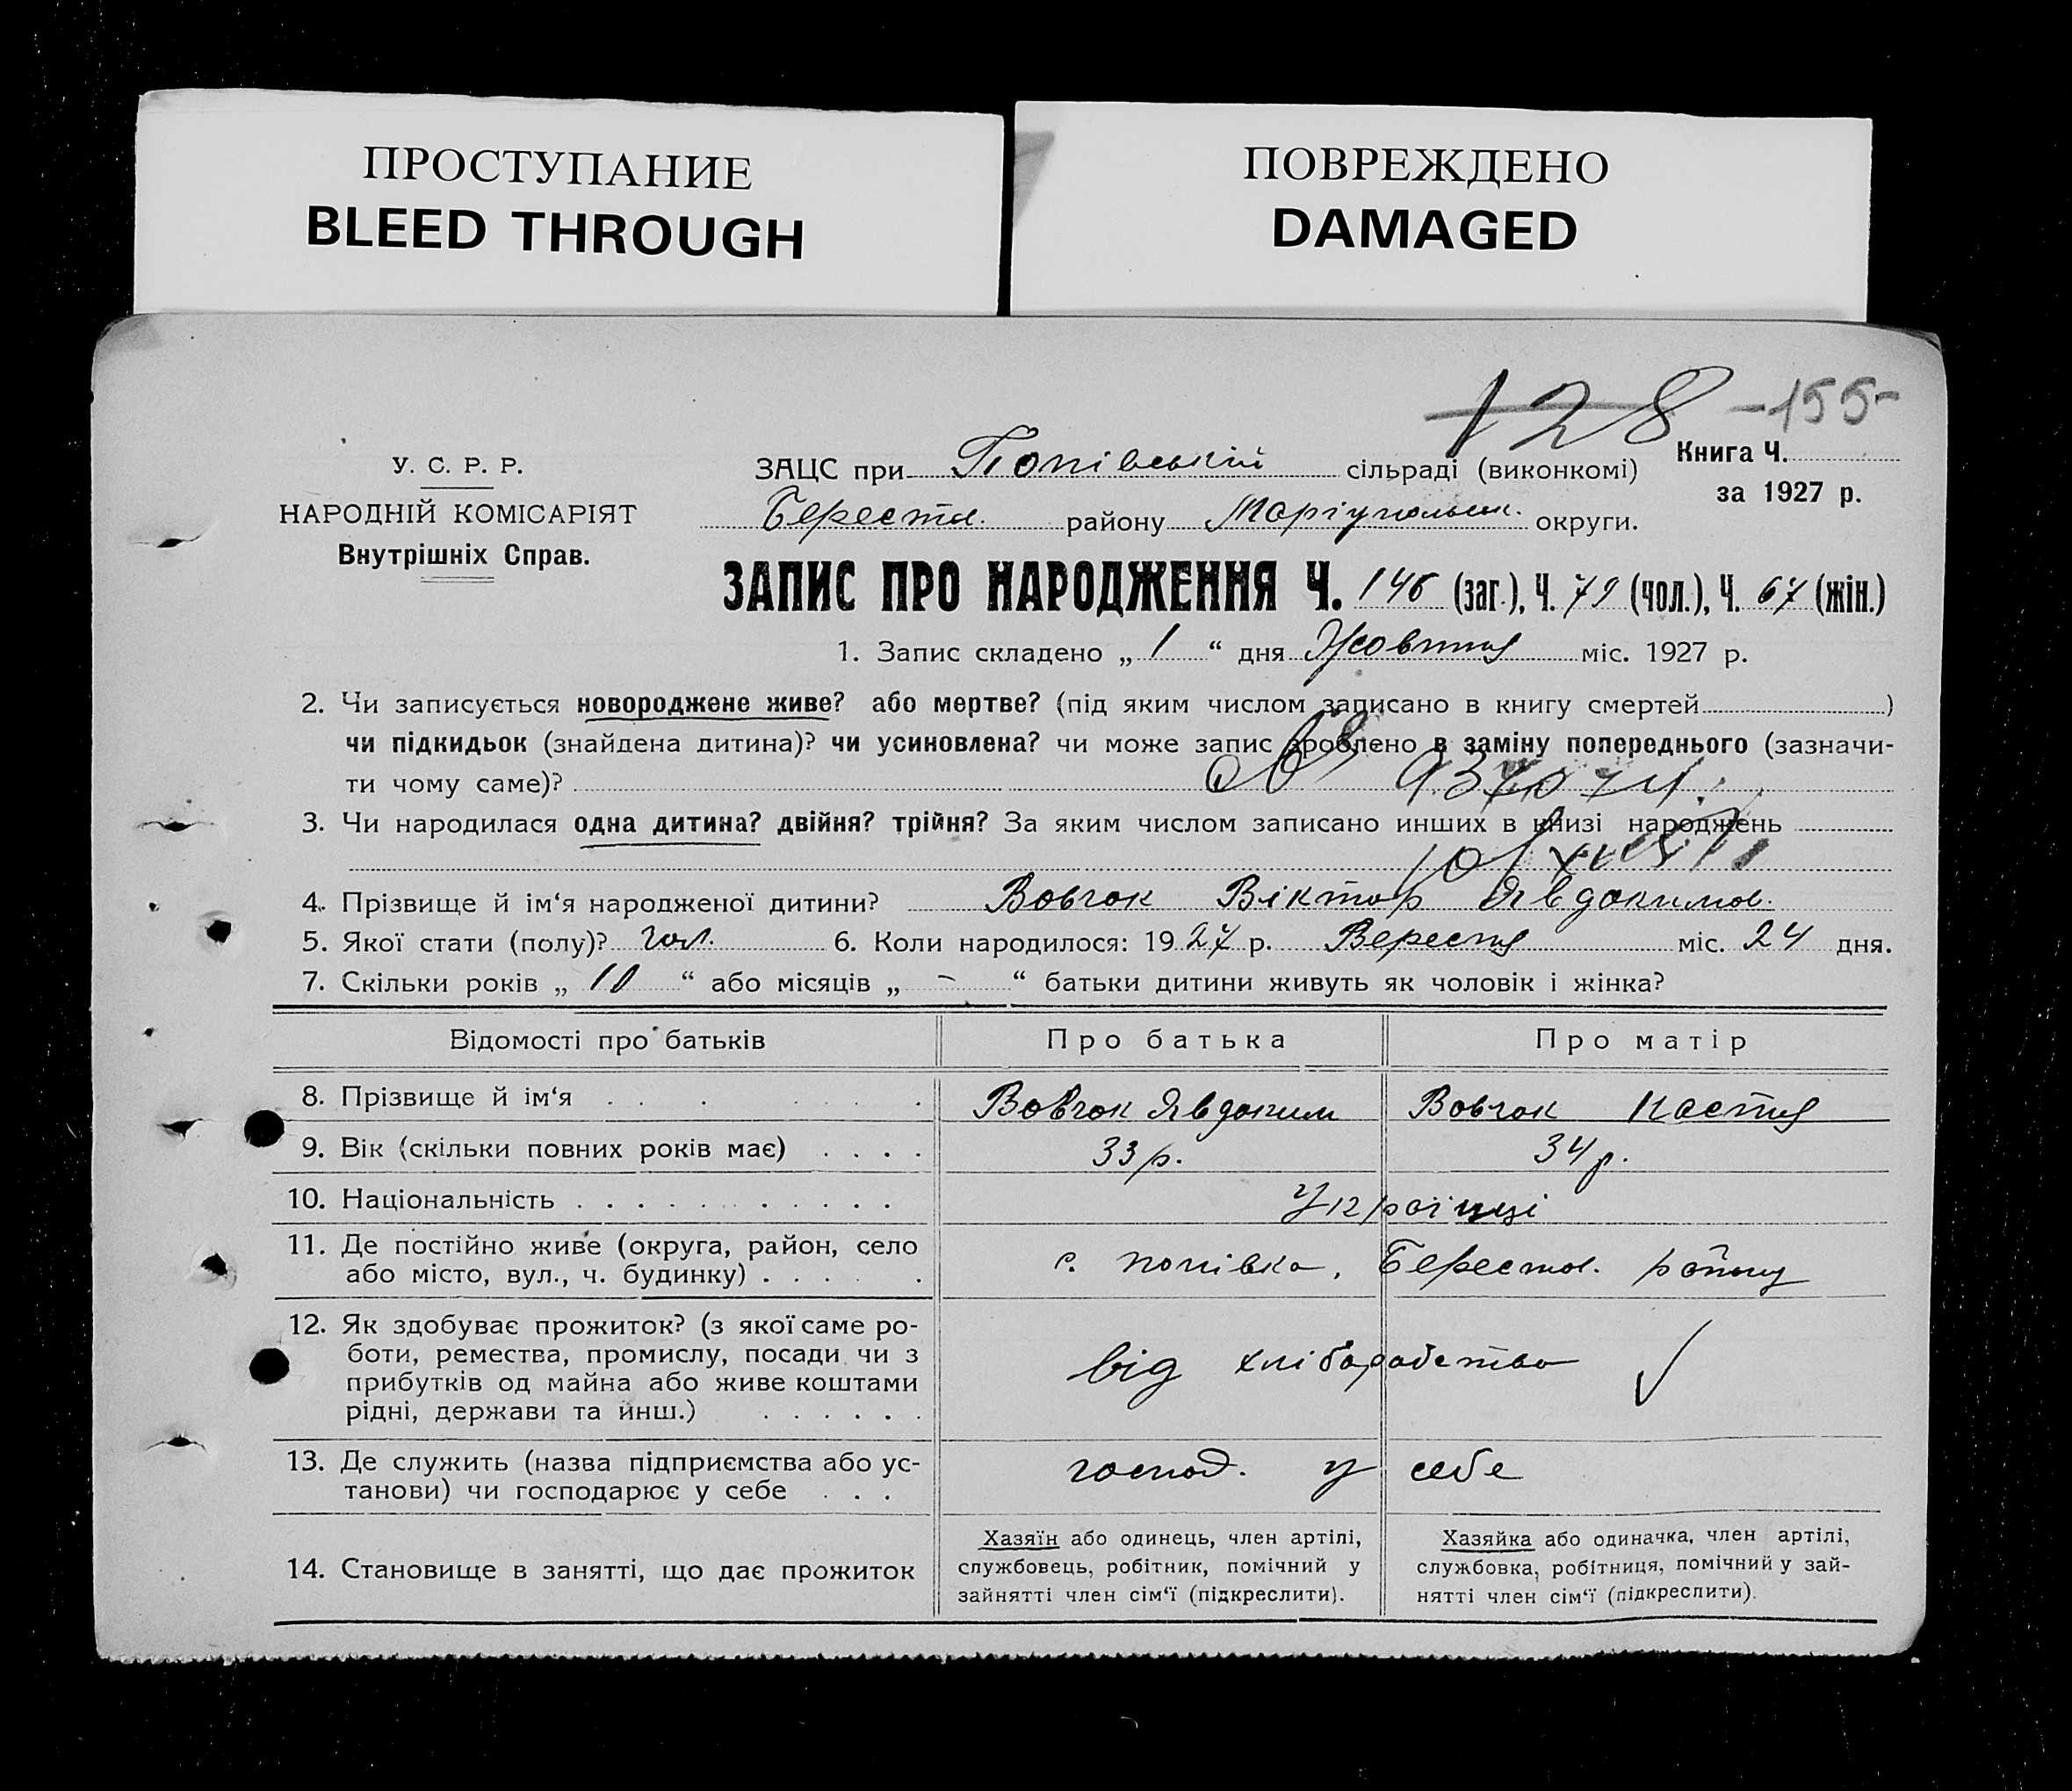 ПРОСТУПАНИЕ
BLEED THROUGH
ПОВРЕЖДЕНО
DAMAGED
128 -155-
У. С. Р. Р.
НАРОДНІЙ КОМІСАРІЯТ
Внутрішніх Справ.
ЗАЦС при Попівській сільраді (виконкомі)
Книга Ч.
за 1927 р.
Берестов. району Маріупольськ. округи.
ЗАПИС ПРО НАРОДЖЕННЯ Ч. 146 (заг.), Ч. 79 (чол.), Ч. 67 (жін.)
1. Запис складено „ 1 “ дня Жовтня міс. 1927 р.
2. Чи записується новороджене живе? або мертве? (під яким числом записано в книгу смертей )
чи підкидьок (знайдена дитина)? чи усиновлена? чи може запис зроблено в заміну попереднього (зазначи-
ти чому саме)?
3. Чи народилася одна дитина? двійня? трійня? За яким числом записано инших в книзі народжень
4. Прізвище й ім‘я народженої дитини? Вовчок Віктор Явдокимов.
5. Якої стати (полу)? чол. 6. Коли народилося: 1927 р. Вересня міс. 24 дня.
7. Скільки років „ 10 “ або місяців „ - “ батьки дитини живуть як чоловік і жінка?
Відомості про батьків Про батька Про матір
8. Прізвище й ім‘я Вовчок Явдоким Вовчок Настя
9. Вік (скільки повних років має) 33 р. 34 р.
10. Національність Українці
11. Де постійно живе (округа, район, село
або місто, вул., ч. будинку) с. Попівка, Берестов. району
12. Як здобуває прожиток? (з якої саме ро-
боти, ремества, промислу, посади чи з
прибутків од майна або живе коштами
рідні, держави та инш.)
від хліборобства
13. Де служить (назва підприємства або ус-
танови) чи господарює у себе
господ. у себе
14. Становище в занятті, що дає прожиток
Хазяїн або одинець, член артілі,
службовець, робітник, помічний у
зайнятті член сім‘ї (підкреслити).
Хазяйка або одиначка, член артілі,
службовка, робітниця, помічний у зай-
нятті член сім‘ї (підкреслити).